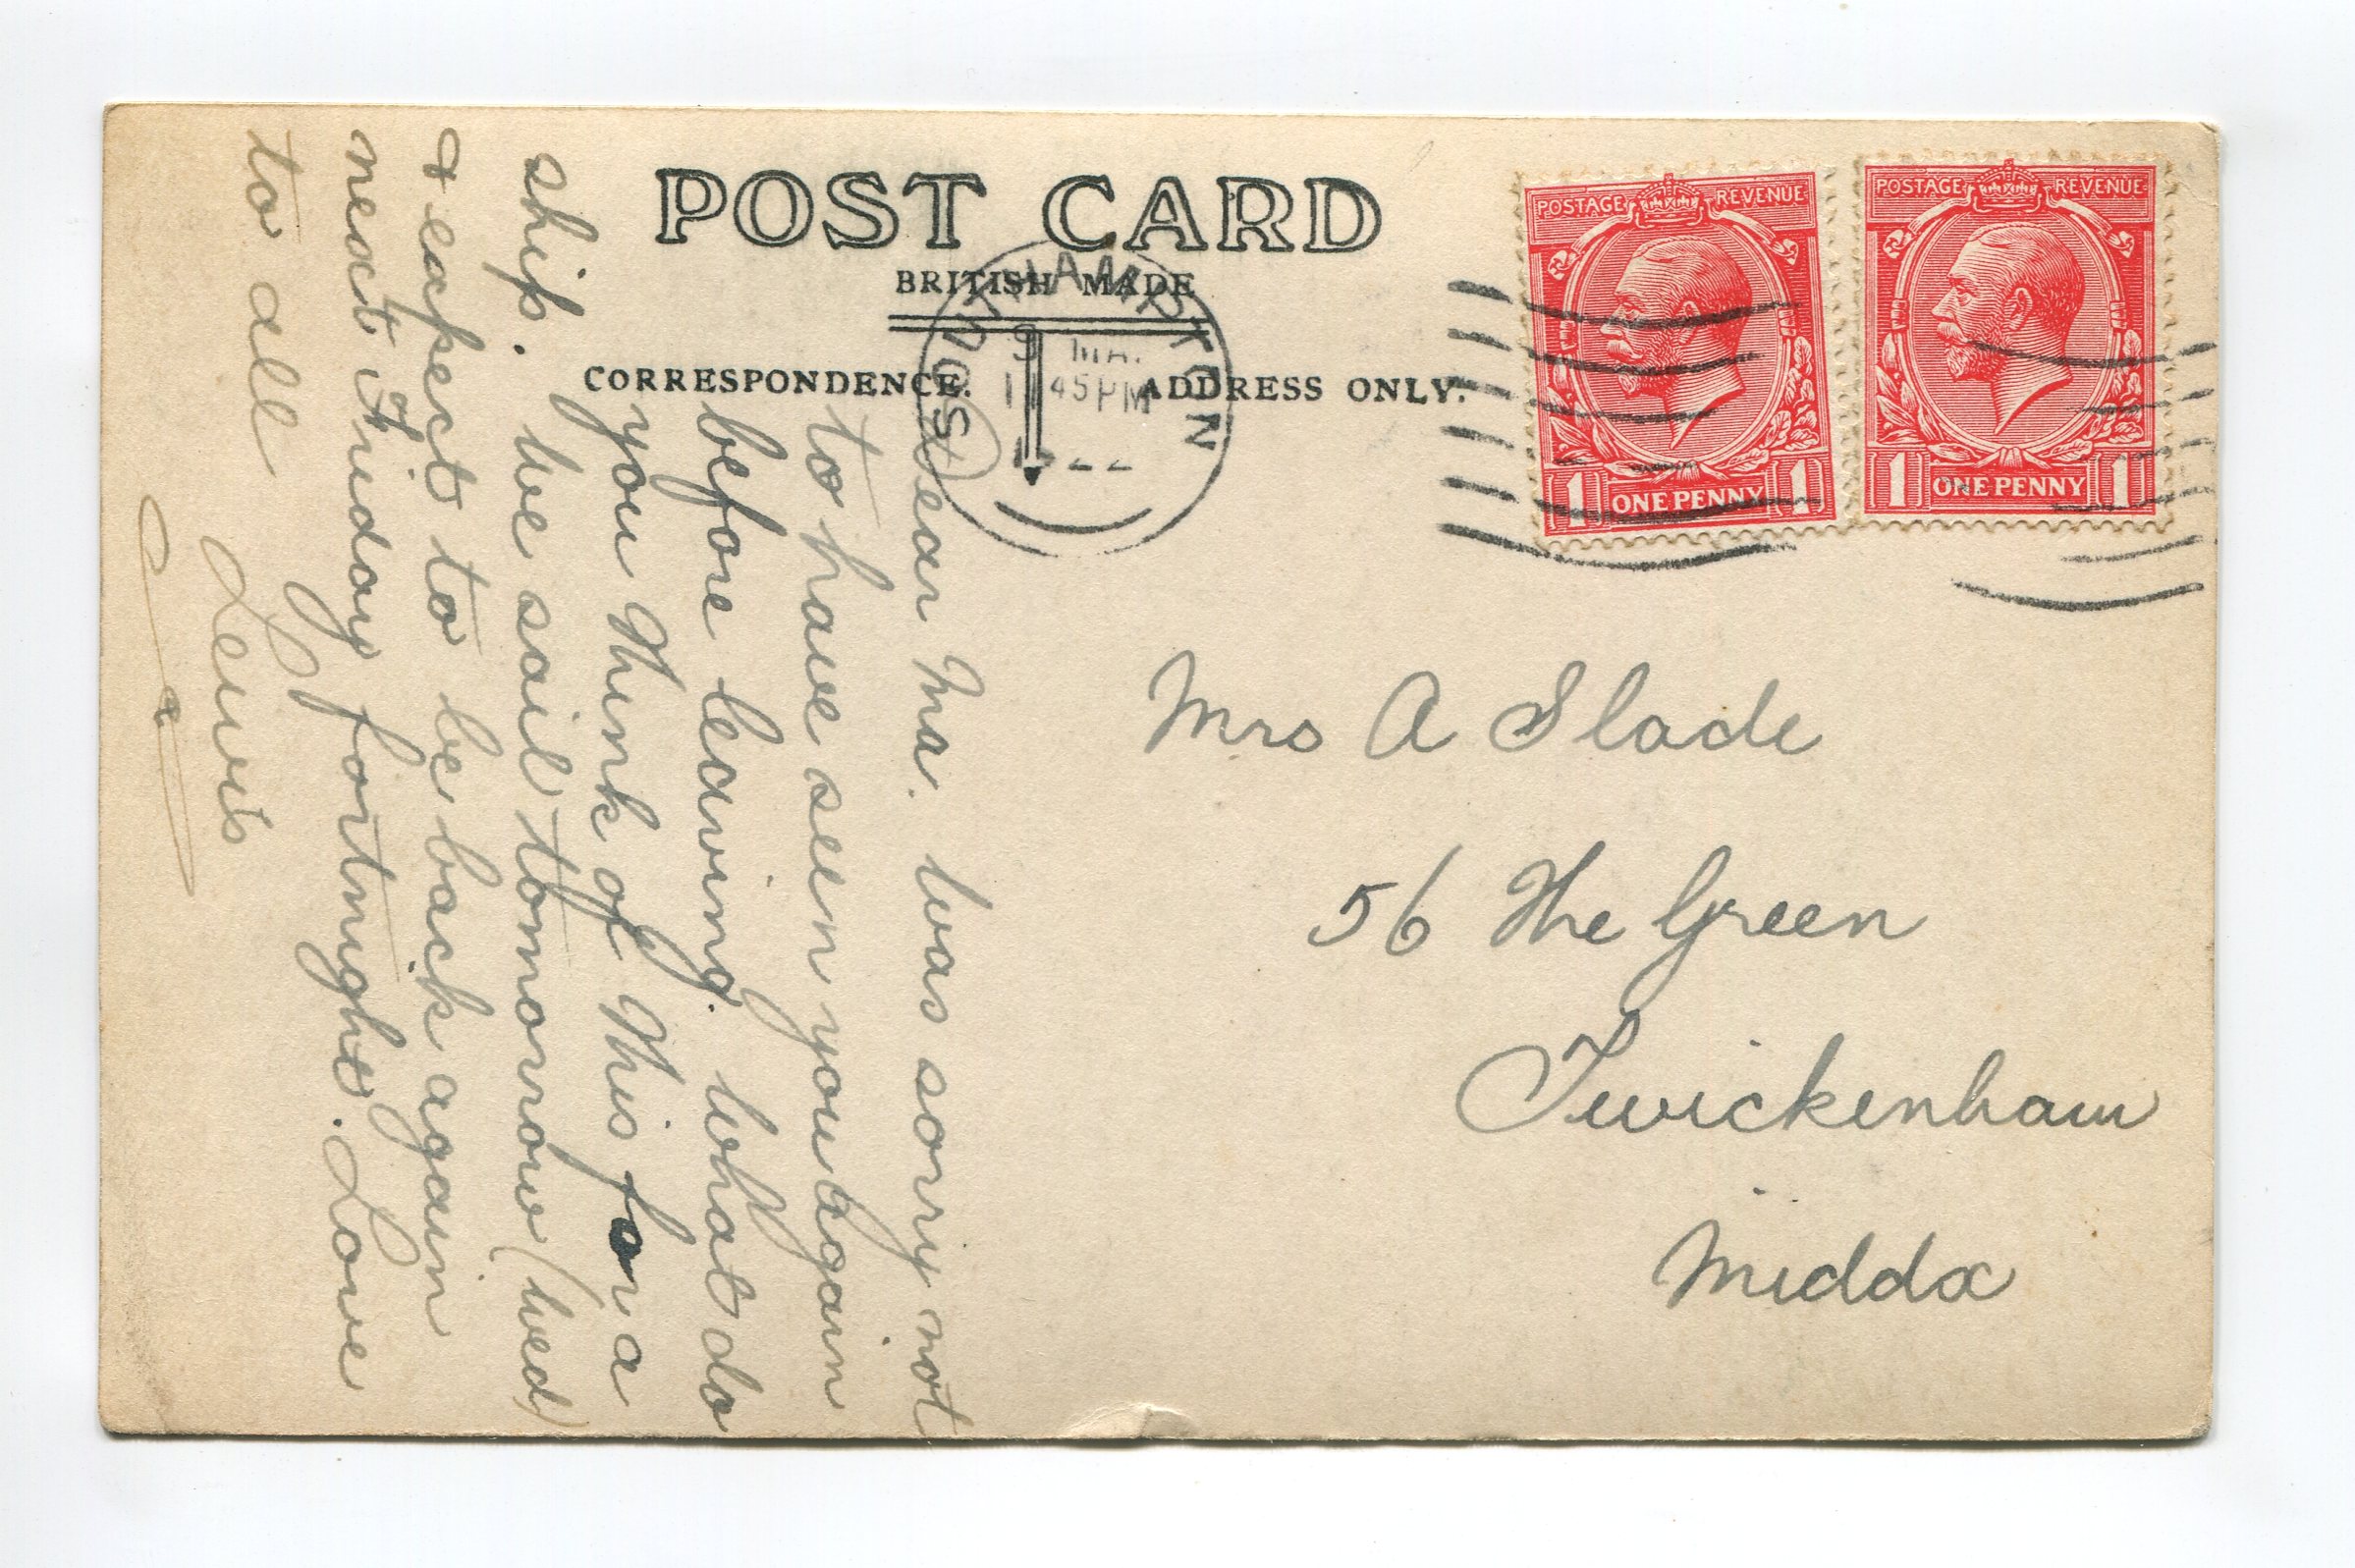 POST CARD
BRITISH MADE
CORRESPONDENCE.
ADDRESS ONLY.
SOUTHAMPTON
45 PM
22
POSTAGE REVENUE
1 ONE PENNY 1
POSTAGE REVENUE
1 ONE PENNY 1
Dear Ma. Was sorry not
to have seen you again
before leaving. What do
you think of this for a
ship. We sail tomorrow (Wed)
& expect to be back again
next Friday fortnight. Love
to all
Lewis
Mrs A Slade
56 The Green
Twickenham
Middx